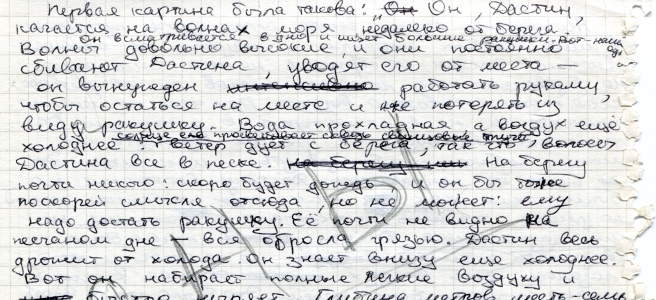 Первая картина была такова: „Он, Дастин,
качается на волнах моря недалеко от берега.
он всматривается в дно и ищет большие ракушки. Вот - нашёл
Волны довольно высокие, и они постоянно
сбивают Дастина, уводят его от места —
он вынужден работать руками,
чтобы остаться на месте и не потерять из
виду ракушку. Вода прохладная а воздух ещё
солнце еле просвечивает сквозь свинцовые тучи
холоднее: ветер дует с берега, так что волосы
Дастина все в песке. На берегу
почти никого: скоро будет дождь и он бы тоже
поскорей смылся отсюда, но не может: ему
надо достать ракушку. Её почти не видно на
песчаном дне — вся обросла грязью. Дастин весь
дрожит от холода. Он знает внизу еще холоднее.
Вот он набирает полные легкие воздуху и
быстро ныряет. Глубина метров шесть-семь